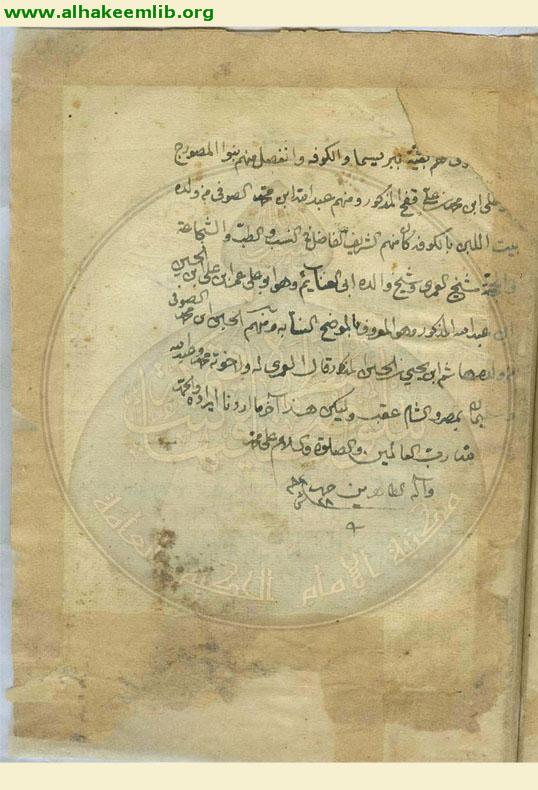 www.alhakeemlib.org
هم بقية ببرسيما والكوفه وانفصل منهم بنوا المصورح
على ابن محمد قفح المذكور ومنهم عبدالله ابن محمد الصوفي من ولده
بيت اللبن بالكوفه كان منهم الشريف الفاضل في النسب والطب والشجاعة
شيخ العمري وشيخ والده ابي الغنايم وهو ابو علي عمر ابن علي ابن الحسين
ابن عبد الله المذكور وهو المعروف بالموضح النسابه ومنهم الحسين ابن محمد الصوفي
ولده هاشم ابن يحيى ابن الحسين المذكور قال العمري له ولاخوته محمد وعبدالله
بمصر والشام عقب وليكن هذا آخر ما اردنا ايراده والحمد
لله رب العالمين والصلوة والسلام على محمد
وآله الطاهرين
مكتبة الإمام الحكيم العامة